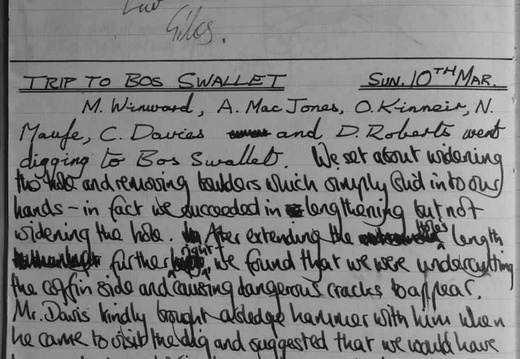 Luv
Giles.
TRIP TO BOS SWALLET SUN. 10TH MAR.
M. Winward, A. Mac Jones, O. Kinneir, N.
Maufe, C. Davies and D. Roberts went
digging to Bos Swallet. We set about widening
the hole and removing boulders which simply slid into our
hands - in fact we succeeded in lengthening but not
widening the hole. After extending the holes length
further right, we found that we were undercutting
the coffin side and causing dangerous cracks to appear.
Mr. Davis kindly brought a sledge hammer with him when
he came to visit the dig and suggested that we would have